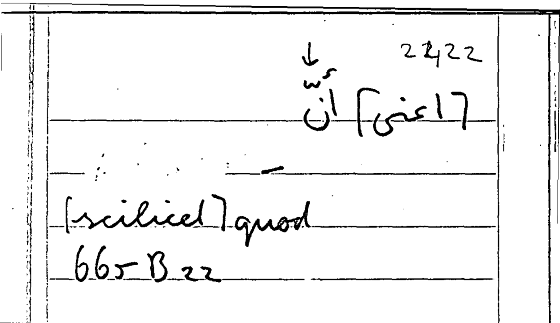 22,22
[اعنى] أنّ
[scilicet] quod
665 B 22